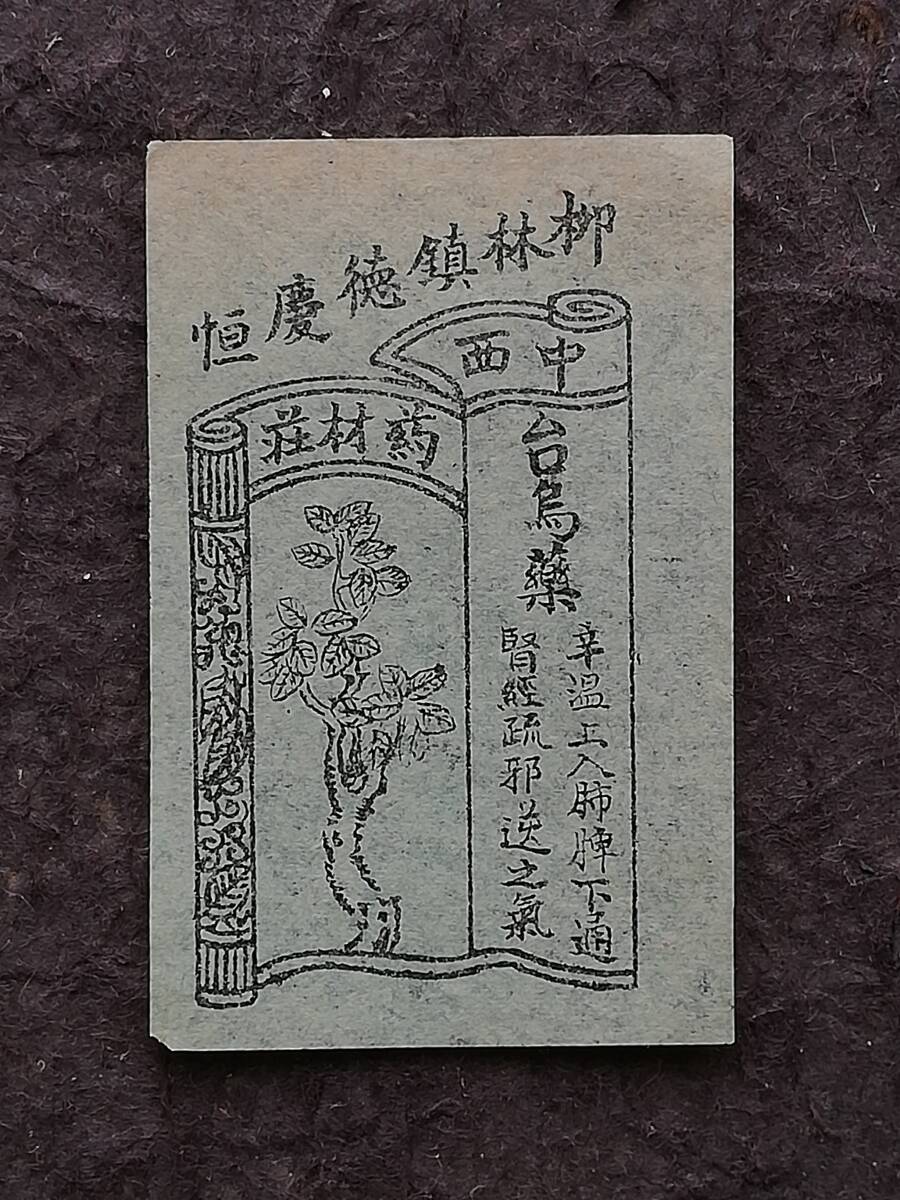 柳林鎮德慶恒
中西
葯材莊
台烏藥
辛溫上入肺脾下通
腎經疏邪逆之氣